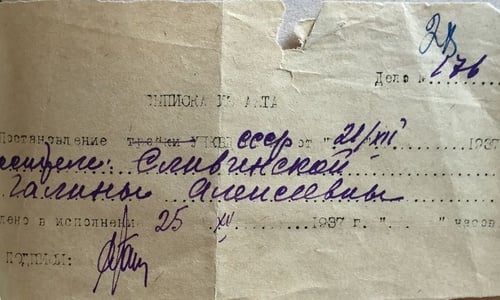 28
Дело № 176
ВЫПИСКА ИЗ АКТА
Постановление тройки УНКВД СССР от "21/XII 1937
Сливинской
Галины Алексеевны
дено в исполнение 25 XII 1937 г. "....." часов
ПОДПИСЬ: